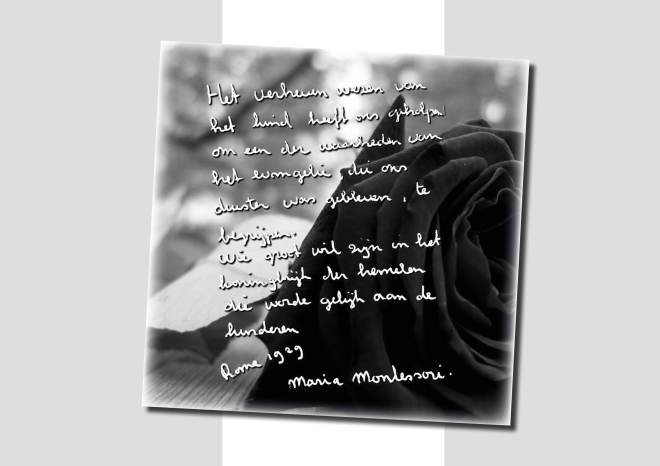 Het verheven wezen van
het kind heeft ons geholpen
om een der waarheden van
het evangelie, die ons
duister was gebleven, te
begrijpen.
Wie groot wil zijn in het
koninkrijk der hemelen
die worde gelijk aan de
kinderen
Rome 1929
Maria Montessori.